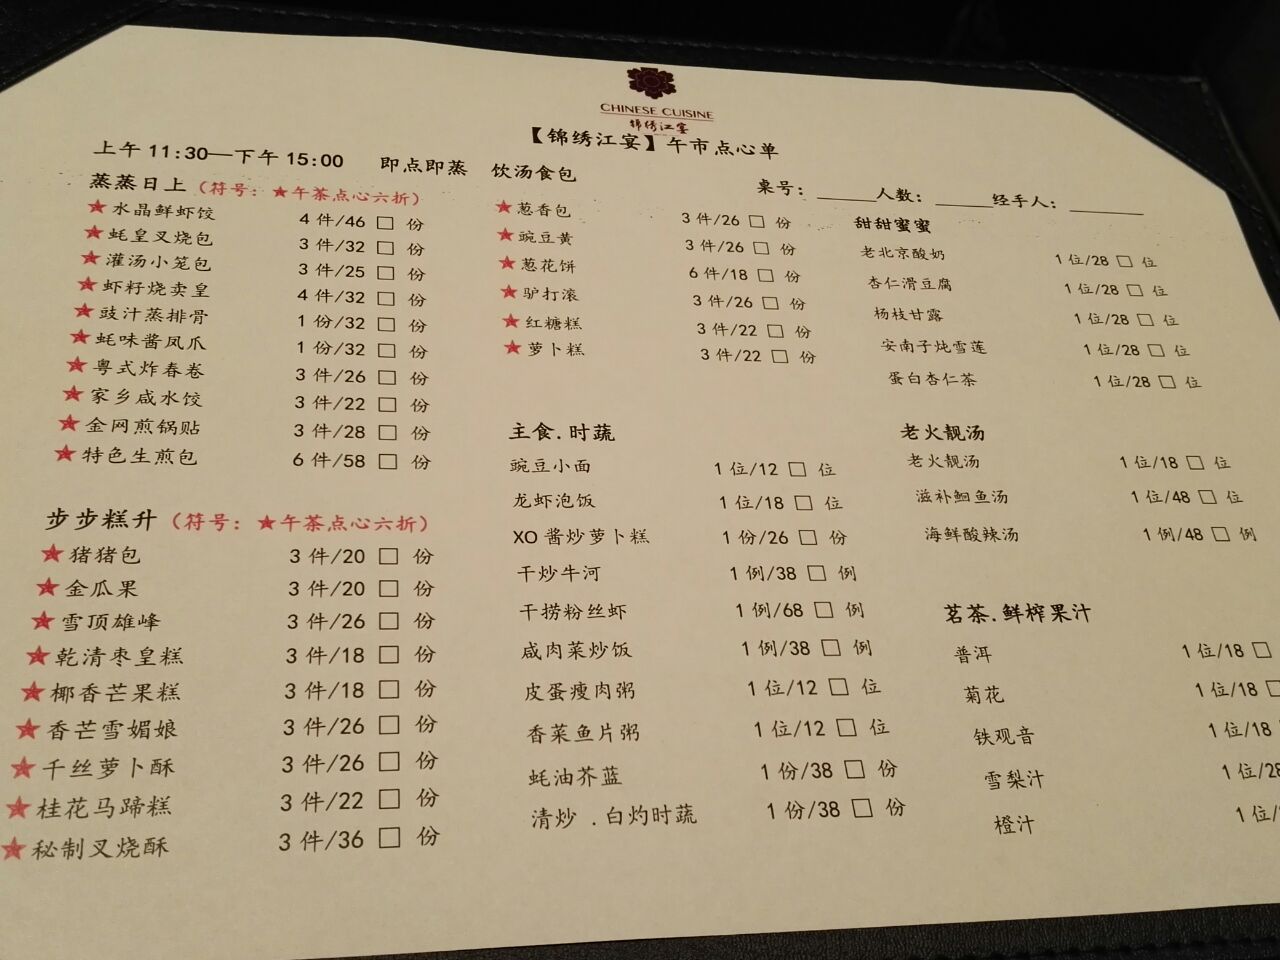 CHINESE CUISINE
锦绣江宴
【锦绣江宴】午市点心单
上午 11:30—下午 15:00 即点即蒸 饮汤食包
桌号：______人数：______经手人：________
蒸蒸日上（符号：★午茶点心六折）
★水晶鲜虾饺 4 件/46 □ 份
★蚝皇叉烧包 3 件/32 □ 份
★灌汤小笼包 3 件/25 □ 份
★虾籽烧卖皇 4 件/32 □ 份
★豉汁蒸排骨 1 份/32 □ 份
★蚝味酱凤爪 1 份/32 □ 份
★粤式炸春卷 3 件/26 □ 份
★家乡咸水饺 3 件/22 □ 份
★金网煎锅贴 3 件/28 □ 份
★特色生煎包 6 件/58 □ 份
步步糕升（符号：★午茶点心六折）
★猪猪包 3 件/20 □ 份
★金瓜果 3 件/20 □ 份
★雪顶雄峰 3 件/26 □ 份
★乾清枣皇糕 3 件/18 □ 份
★椰香芒果糕 3 件/18 □ 份
★香芒雪媚娘 3 件/26 □ 份
★千丝萝卜酥 3 件/26 □ 份
★桂花马蹄糕 3 件/22 □ 份
★秘制叉烧酥 3 件/36 □ 份
★葱香包 3 件/26 □ 份
★豌豆黄 3 件/26 □ 份
★葱花饼 6 件/18 □ 份
★驴打滚 3 件/26 □ 份
★红糖糕 3 件/22 □ 份
★萝卜糕 3 件/22 □ 份
主食.时蔬
豌豆小面 1 位/12 □ 位
龙虾泡饭 1 位/18 □ 位
XO 酱炒萝卜糕 1 份/26 □ 份
干炒牛河 1 例/38 □ 例
干捞粉丝虾 1 例/68 □ 例
咸肉菜炒饭 1 例/38 □ 例
皮蛋瘦肉粥 1 位/12 □ 位
香菜鱼片粥 1 位/12 □ 位
蚝油芥蓝 1 份/38 □ 份
清炒 .白灼时蔬 1 份/38 □ 份
甜甜蜜蜜
老北京酸奶 1 位/28 □ 位
杏仁滑豆腐 1 位/28 □ 位
杨枝甘露 1 位/28 □ 位
安南子炖雪莲 1 位/28 □ 位
蛋白杏仁茶 1 位/28 □ 位
老火靓汤
老火靓汤 1 位/18 □ 位
滋补鮰鱼汤 1 位/48 □ 位
海鲜酸辣汤 1 例/48 □ 例
茗茶.鲜榨果汁
普洱 1 位/18 □
菊花 1 位/18 □
铁观音 1 位/18
雪梨汁 1 位/28
橙汁 1 位/